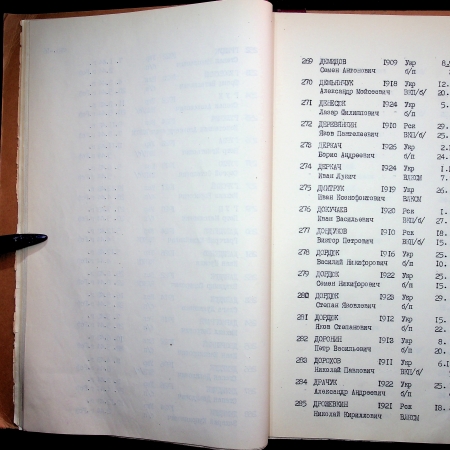 269 ДЕМИДОВ 1909 Укр
Семен Антонович б/п
270 ДЕМЬЯНЧУК 1918 Укр 12.
Александр Мойсеевич ВКП/б/ 20.
271 ДЕНЕСЮК 1924 Укр 5.
Лазар Филиппович
272 ДЕРЕВЯНКИН 1910 Рск 29.
Яков Пантелеевич ВКП/б/ 25.
273 ДЕРКАЧ 1926 Укр
Борис Андреевич б/п 24.
274 ДЕРКАЧ 1924 Укр
Иван Лукич ВЛКСМ 7.
275 ДМИТРУК 1919 Укр 26.
Иван Ксенофонтович ВЛКСМ
276 ДОКУЧАЕВ 1920 Рск
Иван Васильевич ВКП/б/ 27.
277 ДОНДУКОВ 1910 Рск 18.
Виктор Петрович ВКП/б/ 15.
278 ДОРДЮК 1916 Укр 25.
Василий Никифорович б/п 10.
279 ДОРДЮК 1922 Укр 25.
Семен Никифорович б/п 15.
280 ДОРДЮК Укр 29.
Степан Яковлевич б/п
281 ДОРДЮК 1912 Укр 15.
Яков Степанович б/п 22.
282 ДОРОНИН 1918 Укр 8.
Петр Васильевич б/п 20.
283 ДОРОХОВ 1911 Укр
Николай Павлович ВКП/б/
284 ДРАЧИК 1922 Укр 25.
Александр Андреевич б/п 5.
285 ДРОЗЕВКИН 1921 Рск 18.
Николай Кириллович ВЛКСМ